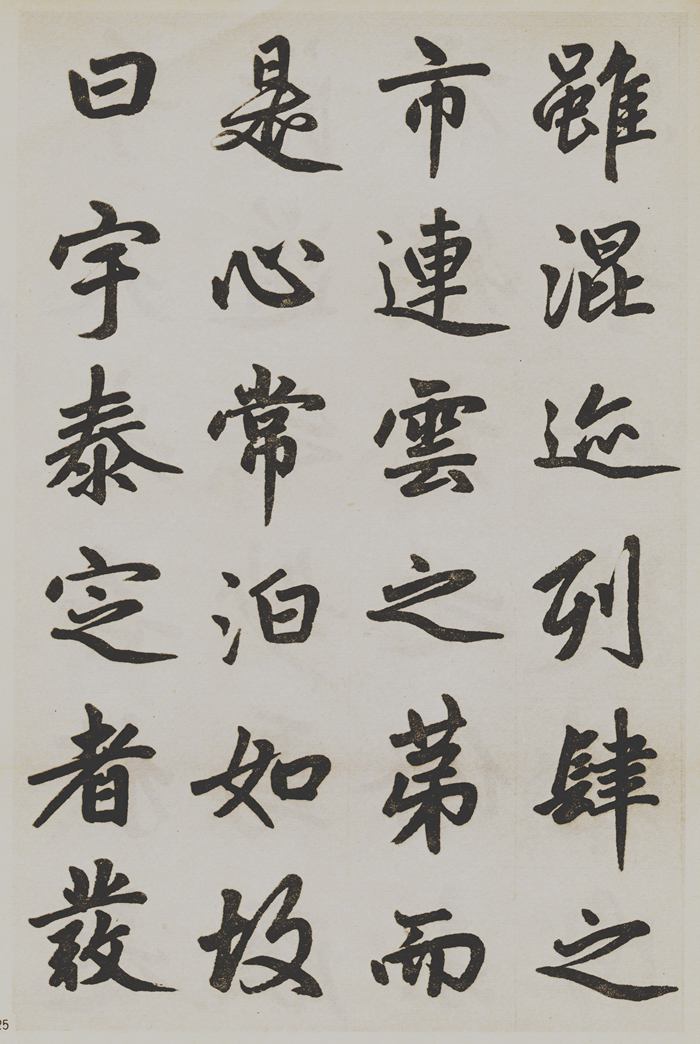 雖混迹列肆之
市連雲之苐而
是心常泊如故
曰宇泰定者發
25